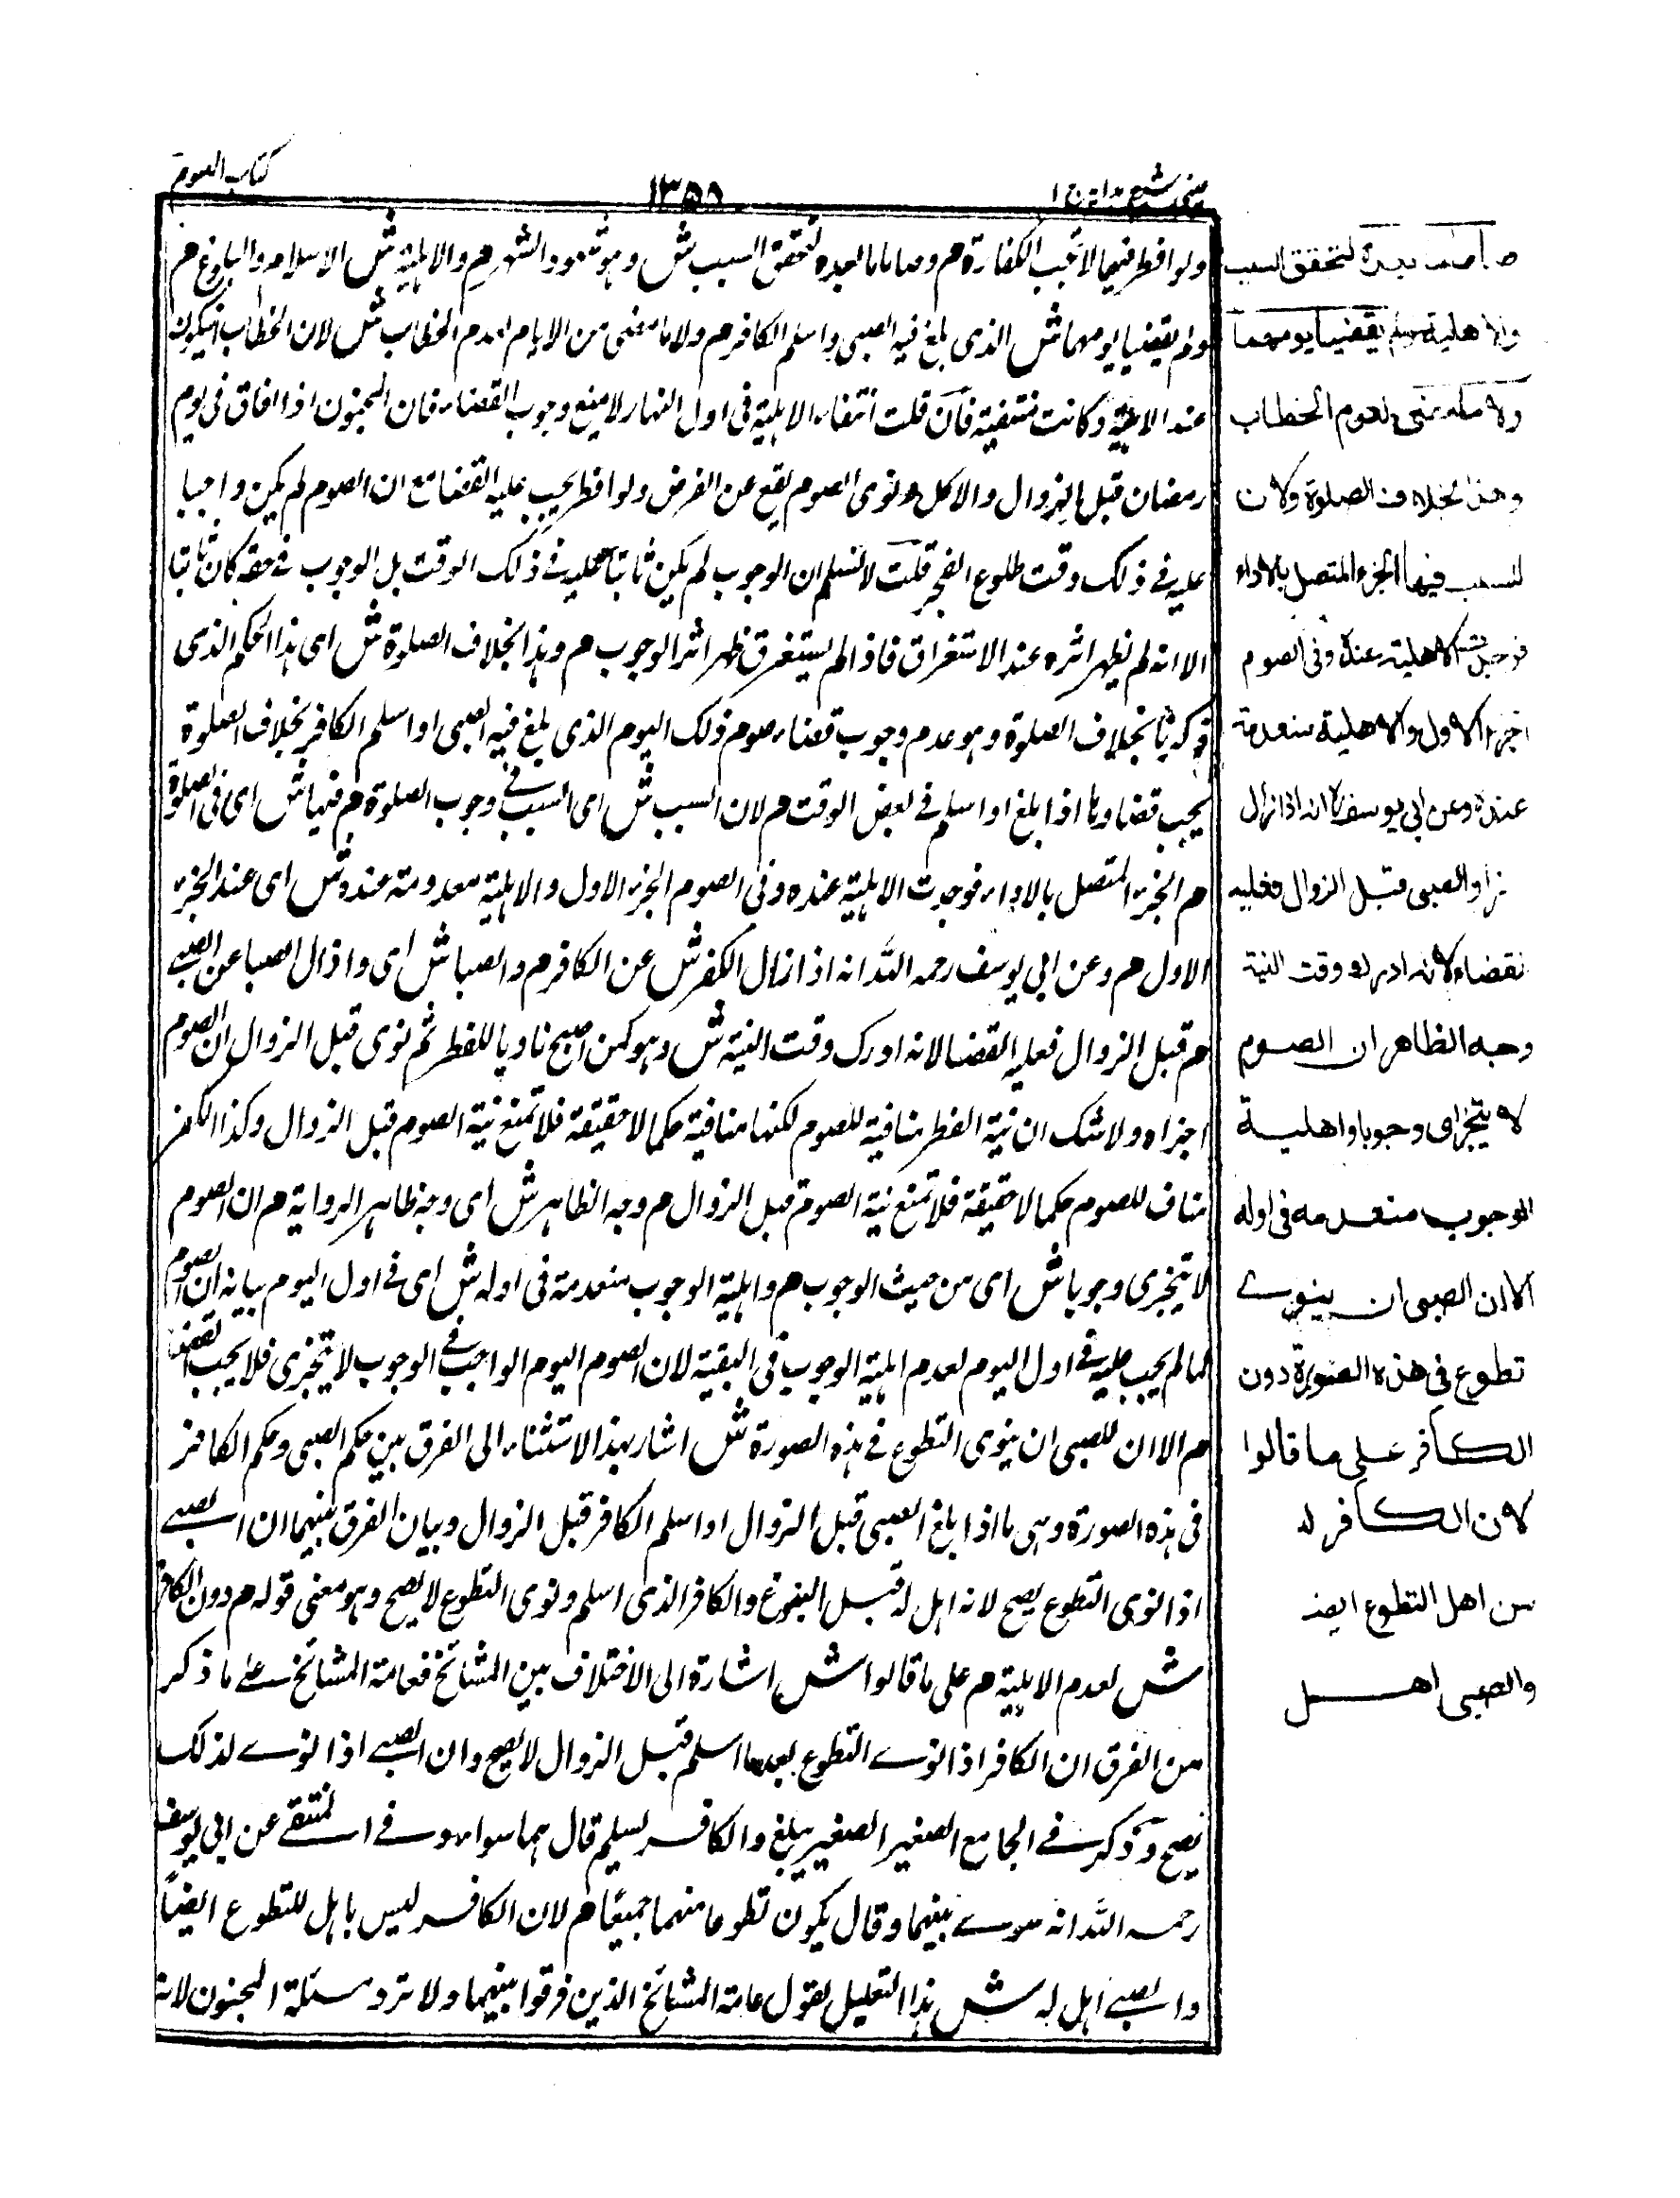 كتاب الصوم
١٣٥٥
عينى شرح هداية ج ١
ولو افطر فيهما لا تجب الكفارة هم وصاما ما بعده لتحقق السبب ش وهو شهود الشهر هم والاهلية ش الاسلام والبلوغ هم
ولم يقضيا يومهما ش الذى بلغ فيه الصبى واسلم الكافر هم ولا ما مضى من الايام لعدم الخطاب ش لان الخطاب انما يكون
عند الاهلية وكانت منتفية فان قلت انتفاء الاهلية فى اول النهار لا يمنع وجوب القضاء فان المجنون اذا افاق فى يوم
رمضان قبل الزوال والاكل ونوى الصوم يقع عن الفرض ولو افطر يجب عليه القضا مع ان الصوم لم يكن واجبا
عليه فى ذلك وقت طلوع الفجر قلت لا نسلم ان الوجوب لم يكن ثابتا عليه فى ذلك الوقت بل الوجوب فى حقه كان ثابتا
الا انه لم يظهر اثره عند الاستغراق فاذا لم يستغرق ظهر اثر الوجوب هم وهذا بخلاف الصلوة ش اى هذا الحكم الذى
ذكرنا بخلاف الصلوة وهو عدم وجوب قضاء صوم ذلك اليوم الذى بلغ فيه الصبى او اسلم الكافر بخلاف الصلوة
يجب قضاوها اذا بلغ او اسلم فى بعض الوقت هم لان السبب ش اى السبب فى وجوب الصلوة هم فيها ش اى فى الصلوة
هم الجزء المتصل بالاداء فوجدت الاهلية عنده وفى الصوم الجزء الاول والاهلية معدومة عنده ش اى عند الجزء
الاول هم وعن ابى يوسف رحمه الله انه اذا زال الكفر ش عن الكافر هم والصبا ش اى واذال الصبا عن الصبى
هم قبل الزوال فعليه القضا لانه ادرك وقت النية ش وهو كمن اصبح ناويا للفطر ثم نوى قبل الزوال ان الصوم
اجزاه ولا شك ان نية الفطر منافية للصوم لكنها منافية حكما لا حقيقة فلا تمنع نية الصوم قبل الزوال وكذا الكفر
مناف للصوم حكما لا حقيقة فلا تمنع نية الصوم قبل الزوال هم وجه الظاهر ش اى وجه ظاهر الرواية هم ان الصوم
لا يتجزى وجوبا ش اى من حيث الوجوب هم واهلية الوجوب منعدمة فى اوله ش اى فى اول اليوم بيانه ان الصوم
لما لم يجب عليه فى اول اليوم لعدم اهلية الوجوب فى البقية لان الصوم اليوم الواجب فى الوجوب لا يتجزى فلا يجب القضا
هم الا ان للصبى ان ينوى التطوع فى هذه الصورة ش اشار بهذا الاستثناء الى الفرق بين حكم الصبى وحكم الكافر
فى هذه الصورة وهى ما اذا بلغ الصبى قبل الزوال او اسلم الكافر قبل الزوال وبيان الفرق بينهما ان الصبى
اذا نوى التطوع يصح لانه اهل له قبل البلوغ والكافر الذى اسلم ونوى التطوع لا يصح وهو معنى قوله هم دون الكافر
ش لعدم الاهلية هم على ما قالوا ش اشارة الى الاختلاف بين المشائخ فعامة المشائخ على ما ذكر
من الفرق ان الكافر اذا نوى التطوع بعد ما اسلم قبل الزوال لا يصح وان الصبى اذا نوى لذلك
يصح وذكر فى الجامع الصغير الصغير يبلغ والكافر يسلم قال هما سواء وفى المنتقى عن ابى يوسف
رحمه الله انه سوى بينهما وقال يكون تطوعا منهما جميعًا هم لان الكافر ليس باهل للتطوع ايضًا
والصبى اهل له ش هذا التعليل لقول عامة المشائخ الذين فرقوا بينهما ولا ترد مسئلة المجنون لانه
صاما ما بعده لتحقق السبب
والاهلية ولم يقضيا يومهما
ولا ما مضى لعدم الخطاب
وهذا بخلاف الصلوة ولان
السبب فيها الجزء المتصل بالاداء
فوجدت الاهلية عنده وفى الصوم
الجزء الاول والاهلية منعدمة
عنده وعن ابى يوسف انه اذا زال
الكفر او الصبى قبل الزوال فعليه
القضاء لانه ادرك وقت النية
وجه الظاهر ان الصوم
لا يتجزى وجوبا واهلية
الوجوب منعدمة فى اوله
الا ان الصبى ان ينوى
تطوع فى هذه الصورة دون
الكافر على ما قالوا
لان الكافر له
من اهل التطوع ايضا
والصبى اهل